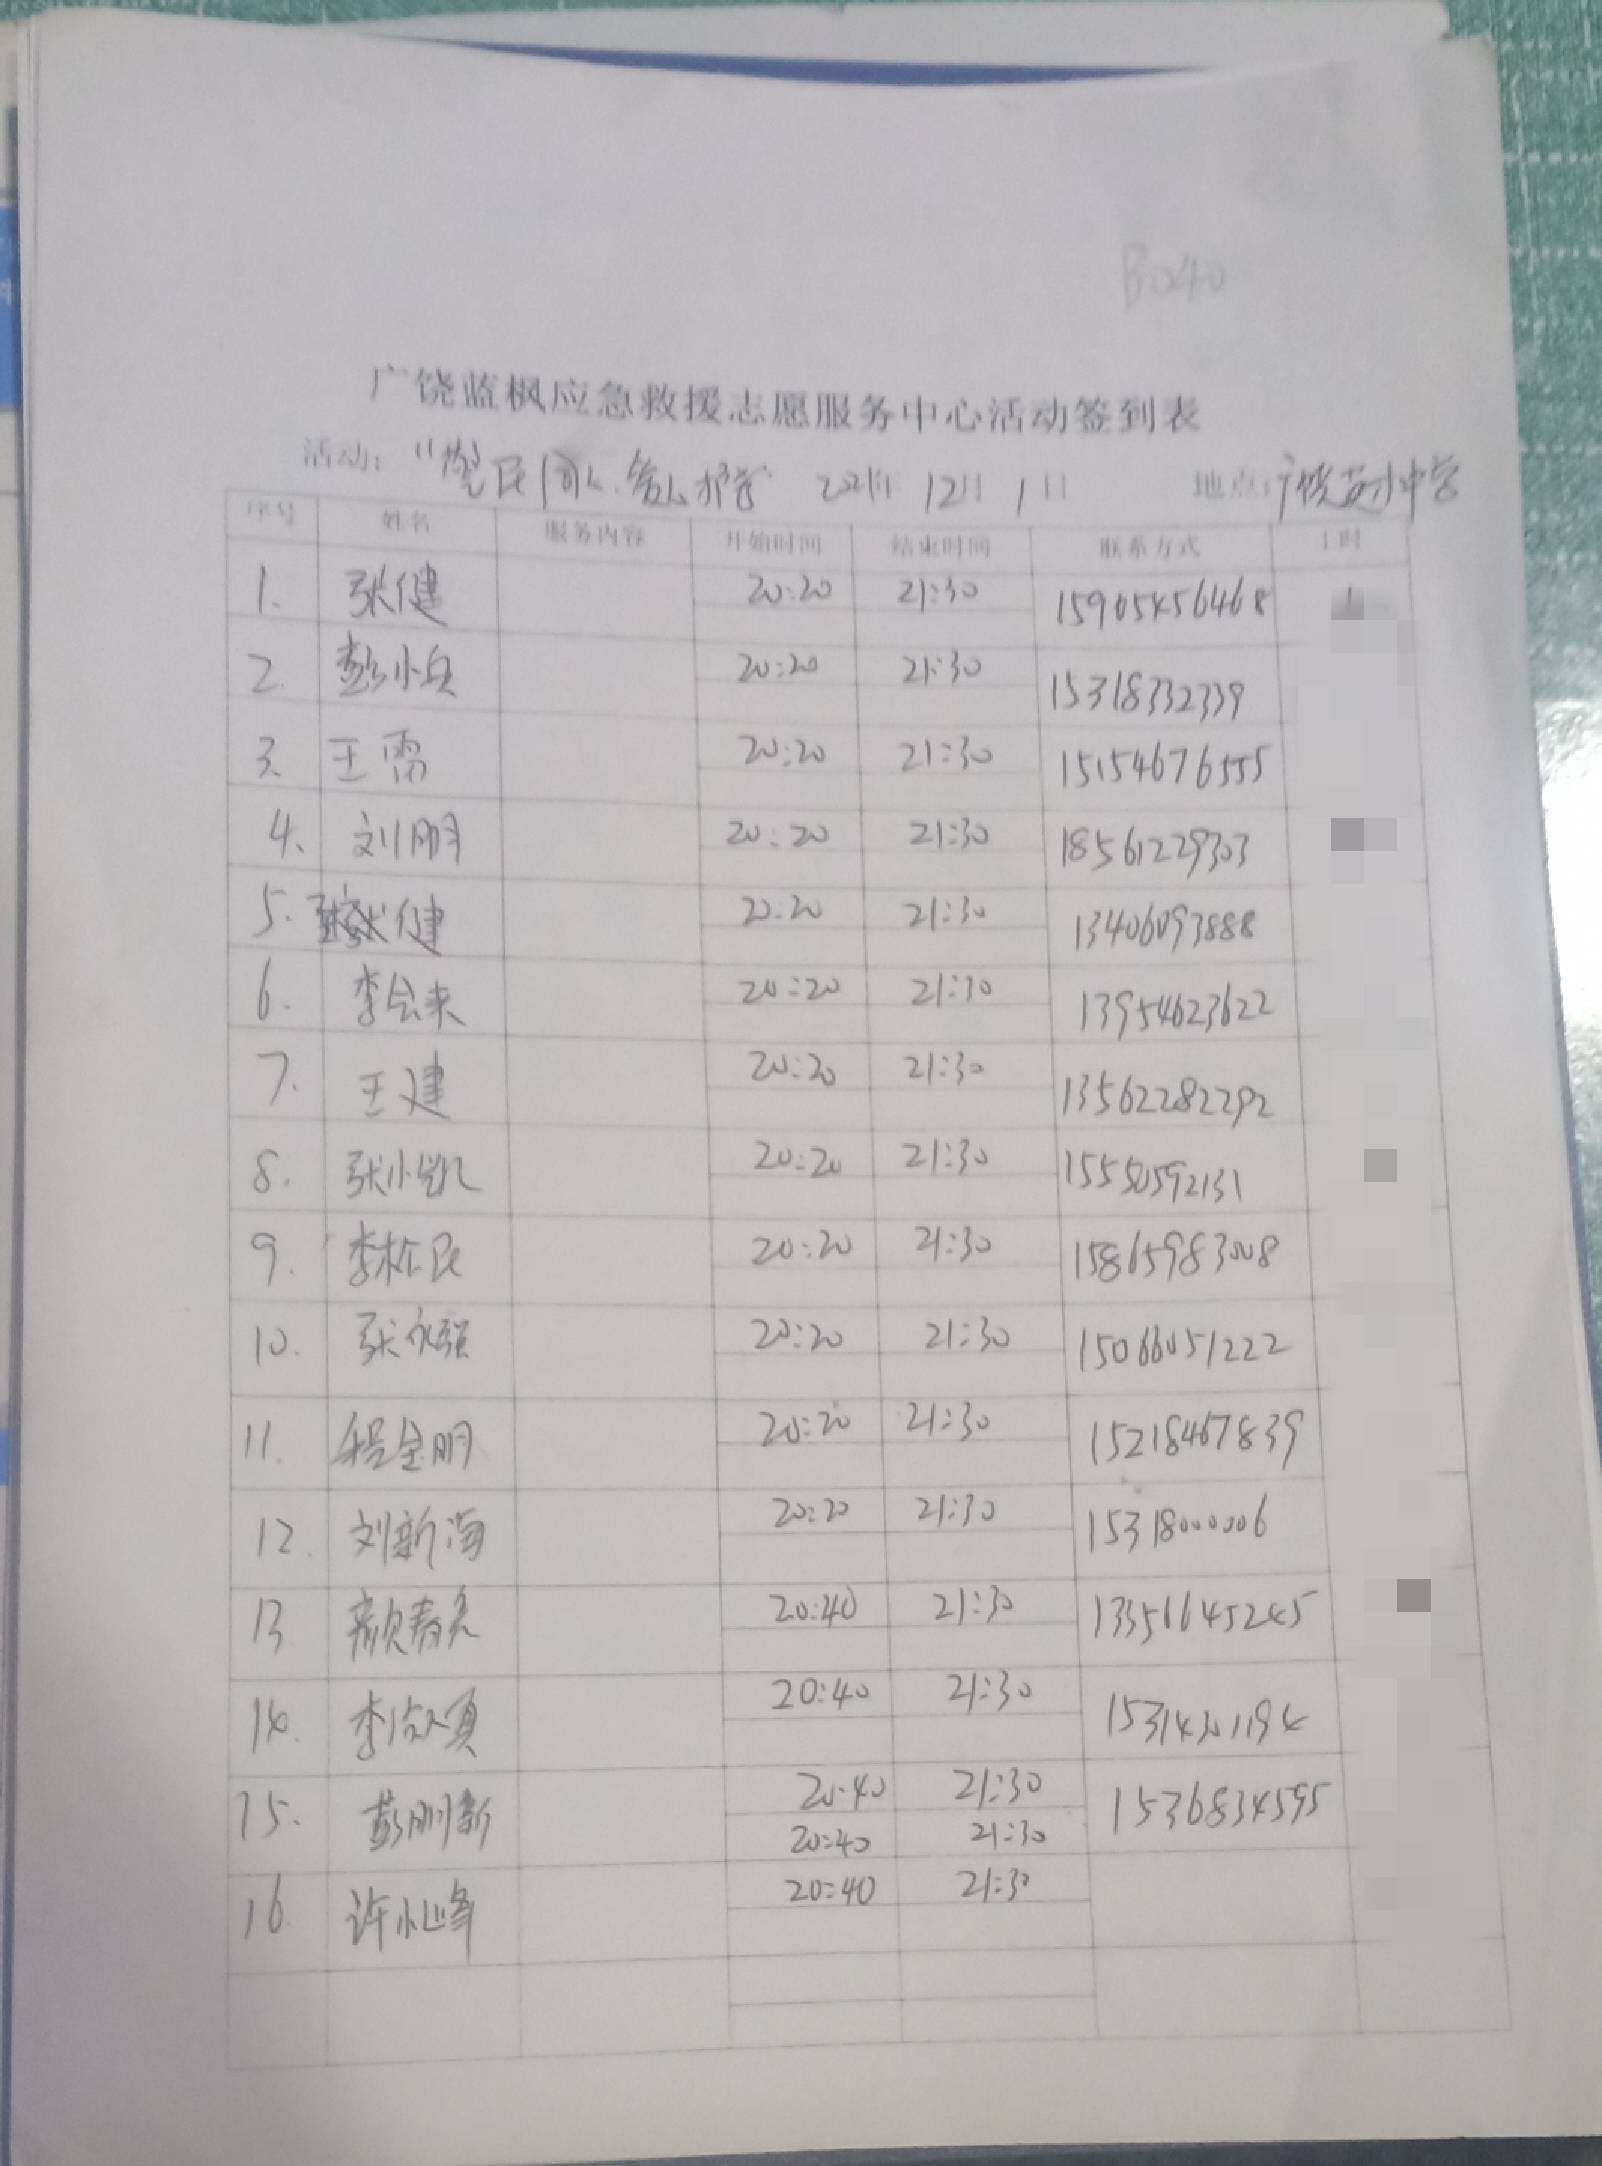 B040
广饶蓝枫应急救援志愿服务中心活动签到表
活动: 2021年 12月 1日 地点:广饶英才中学
序号 姓名 服务内容 开始时间 结束时间 联系方式 工时
1. 张健 20:20 21:30 15905456468
2. 彭小兵 20:20 21:30 15318332339
3. 王雷 20:20 21:30 15154676555
4. 刘朋 20:20 21:30 18561229303
5. 健 20:20 21:30 13406093888
6. 李会来 20:20 21:30 13954623622
7. 王建 20:20 21:30 13562282292
8. 张小凯 20:20 21:30 15550592131
9. 李松民 20:20 21:30 15865983008
10. 张永强 20:20 21:30 15066051222
11. 程金朋 20:20 21:30 15218467839
12. 刘新海 20:20 21:30 15318000006
13 颜春光 20:40 21:30 13356645245
14. 20:40 21:30
15. 彭刚新 20:40 21:30 1536834595
20:40 21:30
16 许小峰 20:40 21:30